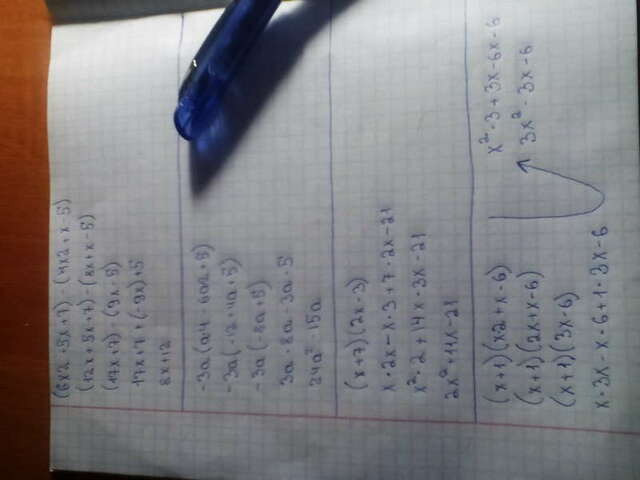 (6x2+5x+7) - (4x2+x-5)
(12x+5x+7) - (8x+x-5)
(17x+7) - (9x-5)
17x+7+(-9x)+5
8x+12
-3a(a4-6a2+5)
-3a(-12+4a+5)
-3a(-8a+5)
3a·8a-3a·5
24a²-15a
(x+7)(2x-3)
x·2x-x·3+7·2x-21
x²·2+14x-3x-21
2x²+11x-21
(x+1)(x2+x-6)
(x+1)(2x+x-6)
(x+1)(3x-6)
x·3x-x·6+1·3x-6
x²·3+3x-6x-6
3x²-3x-6